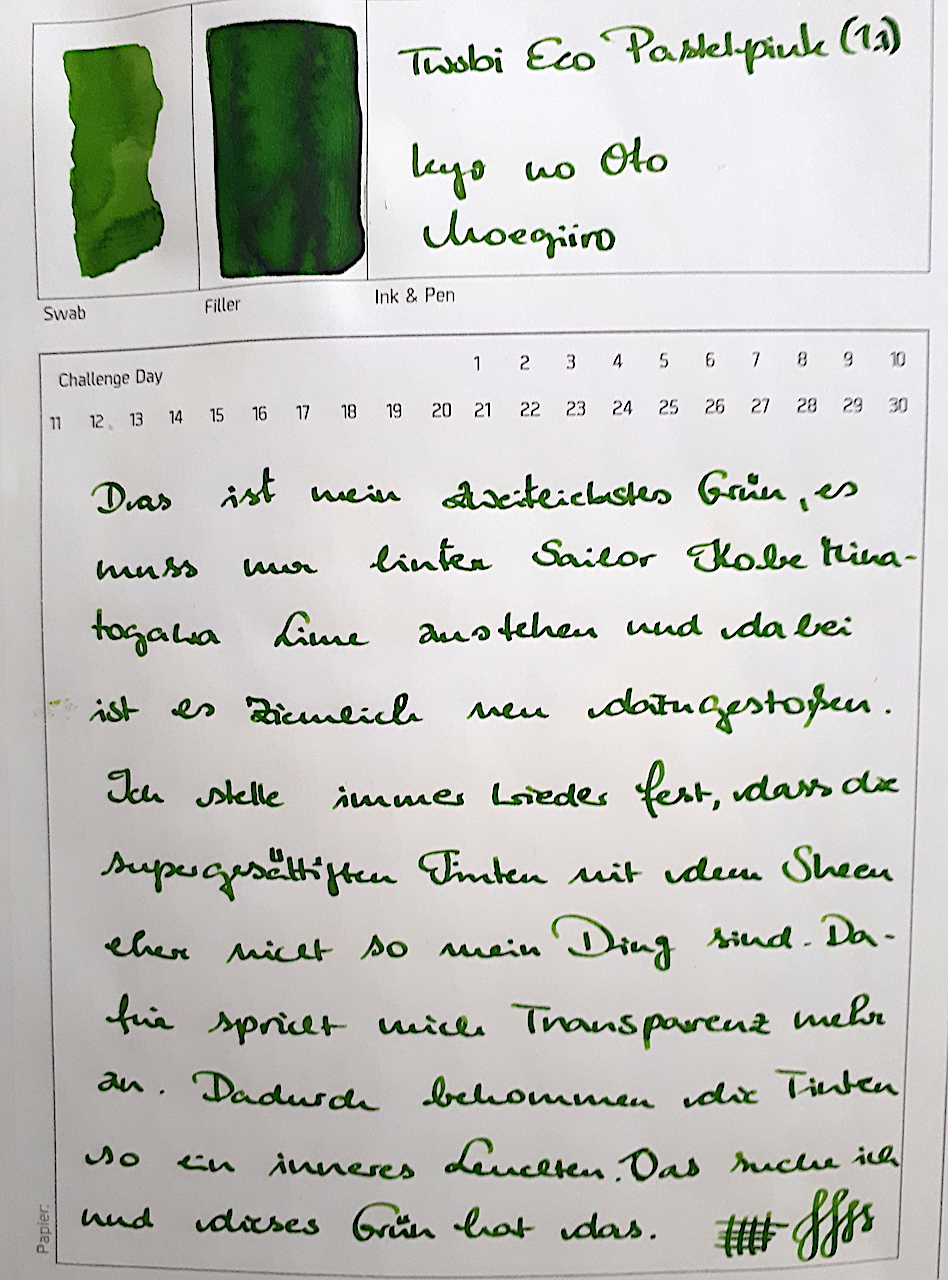 Twsbi Eco Pastellpink (1.1)
Kyo no Oto
Moegiiro
Swab
Filler
Ink & Pen
Challenge Day
1 2 3 4 5 6 7 8 9 10
11 12 13 14 15 16 17 18 19 20 21 22 23 24 25 26 27 28 29 30
Das ist mein zweitliebstes Grün, es
muss nur hinter Sailor Kobe Mina-
togawa Lime anstehen und dabei
ist es ziemlich neu dazugestoßen.
Ich stelle immer wieder fest, dass die
supergesättigten Tinten mit dem Sheen
eher nicht so mein Ding sind. Da-
für spricht mich Transparenz mehr
an. Dadurch bekommen die Tinten
so ein inneres Leuchten. Das suche ich
und dieses Grün hat das.
Papier: